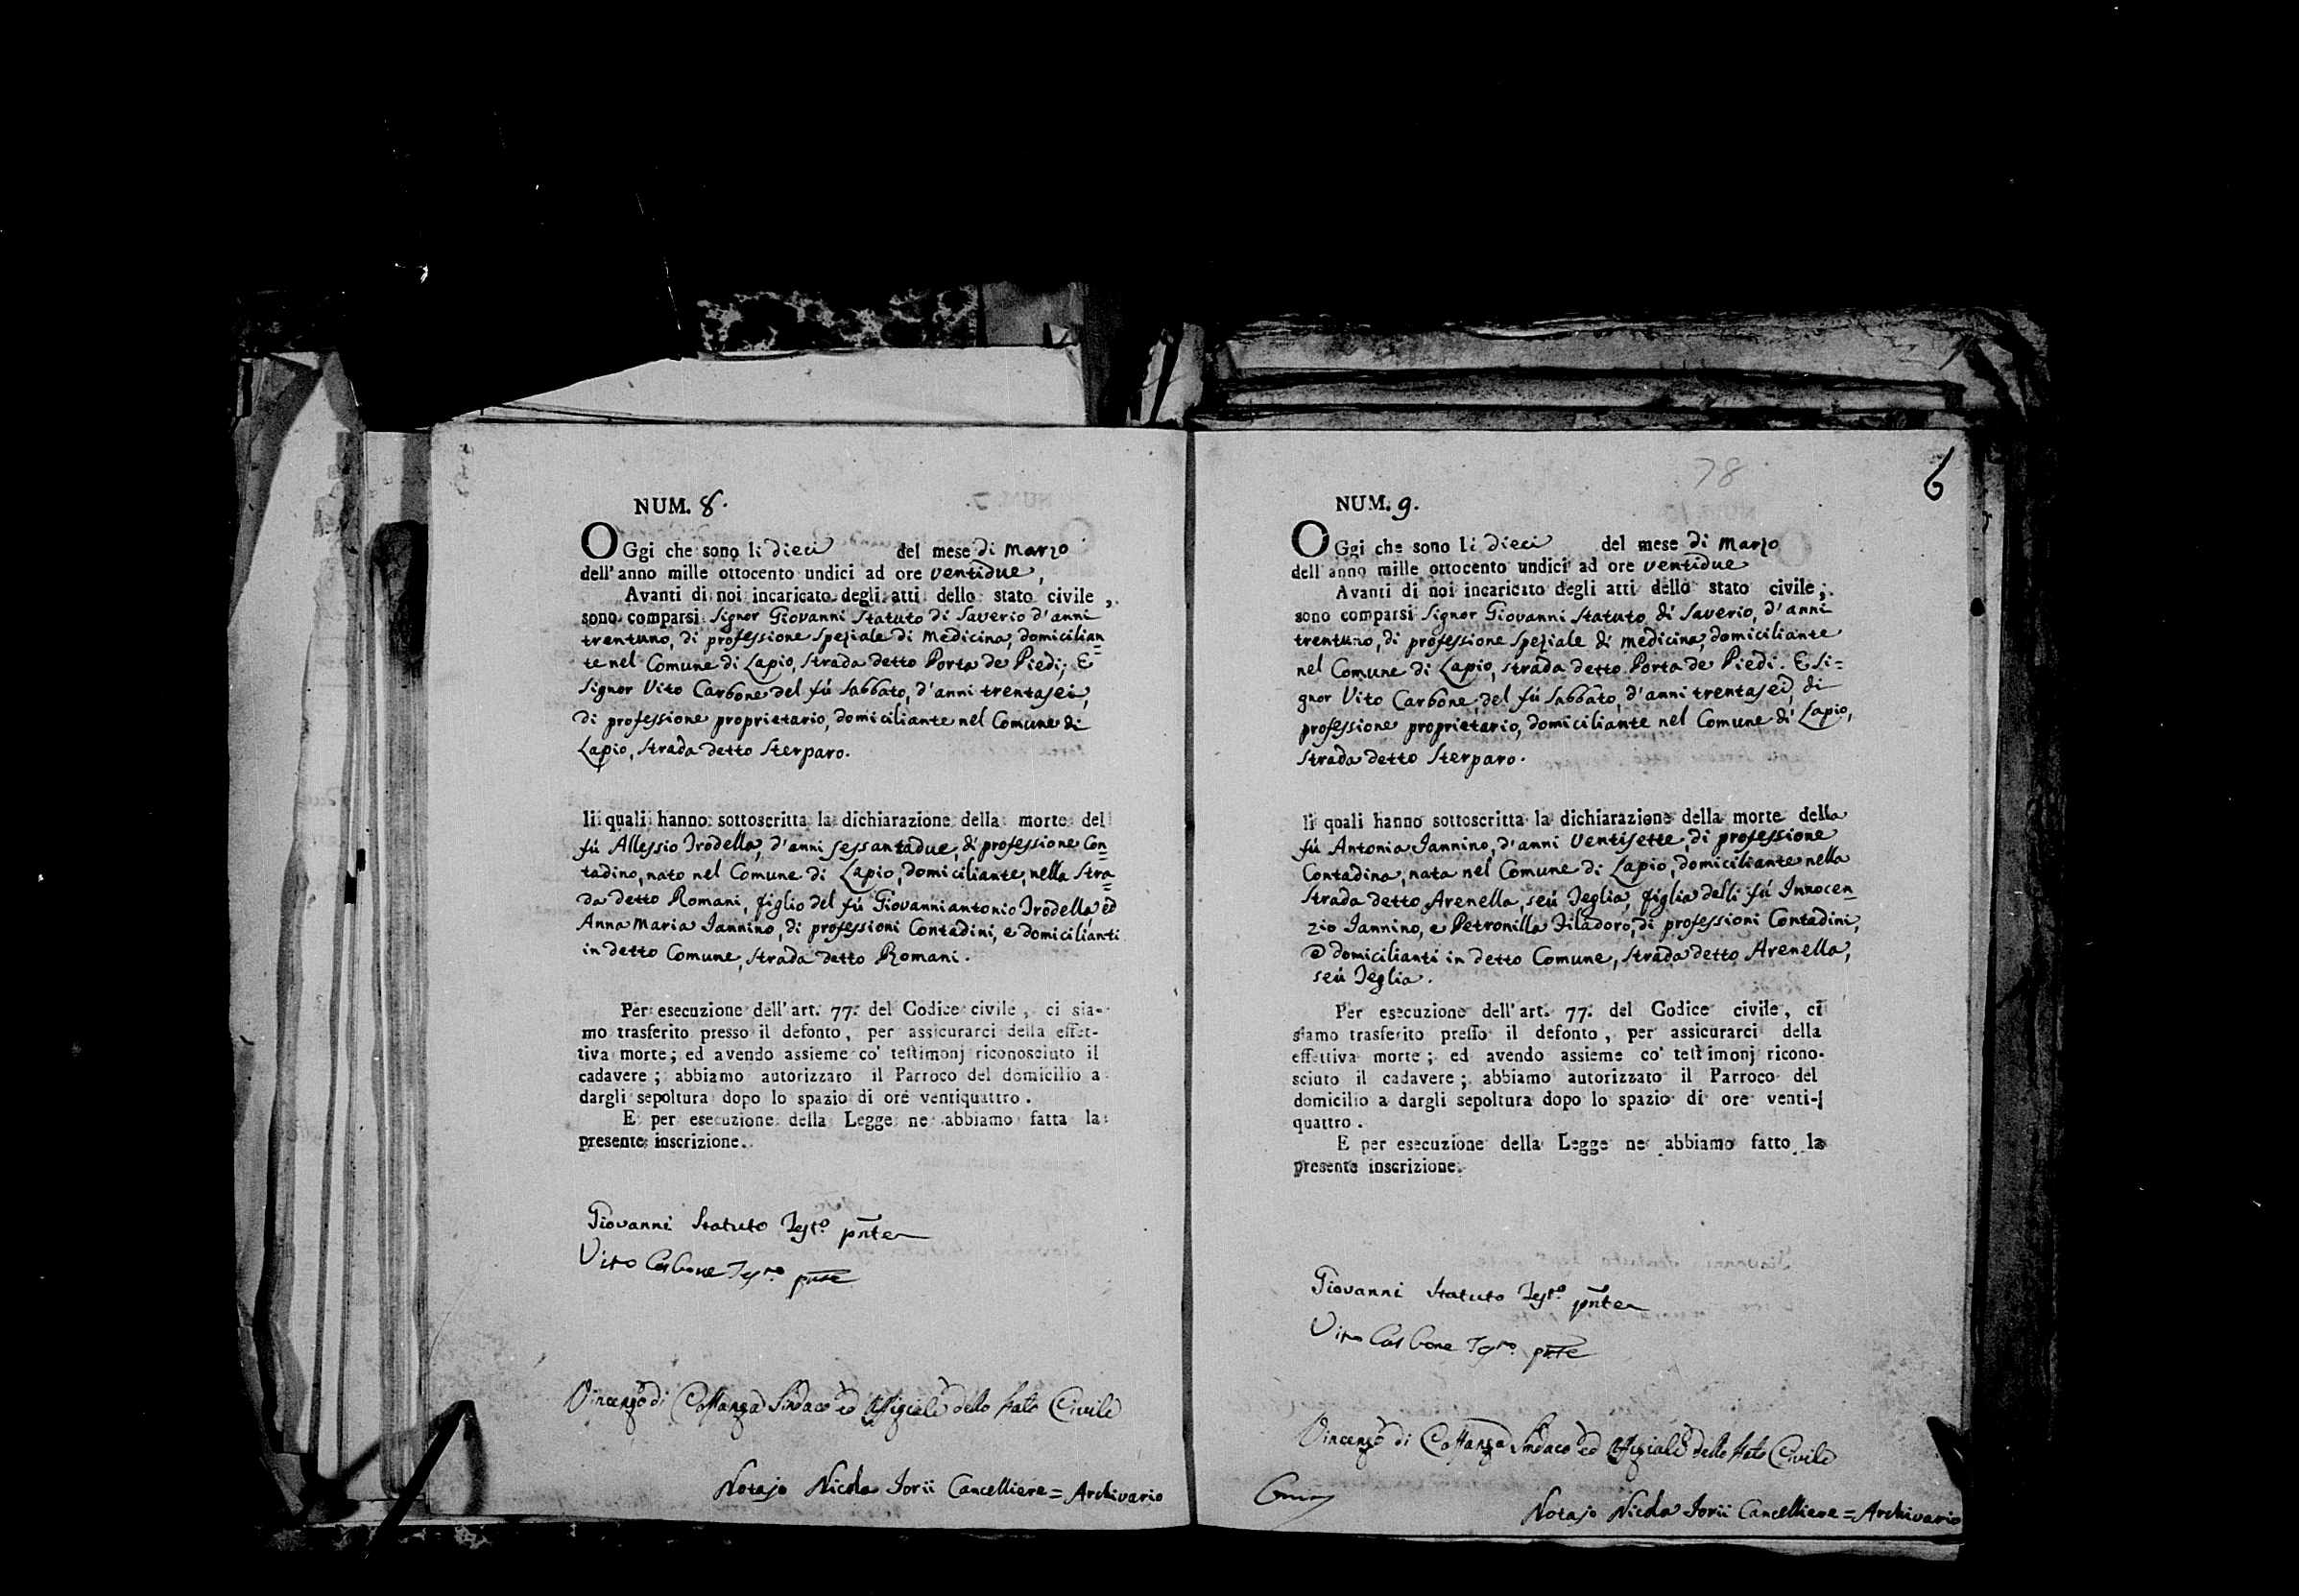 NUM. 8.
OGgi che sono li dieci del mese di Marzo
dell'anno mille ottocento undici ad ore ventidue,
Avanti di noi incaricato degli atti dello stato civile,
sono comparsi Signor Giovanni Statuto di Saverio d'anni
trentuno, di professione Speziale di Medicina, domicilian=
te nel Comune di Lapio, Strada detto Porta de Piedi; E
Signor Vito Carbone del fù Sabbato, d'anni trentasei,
di professione proprietario, domiciliante nel Comune di
Lapio, Strada detto Sterparo.
li quali hanno sottoscritta la dichiarazione della morte del
fù Allessio Irodella, d'anni sessantadue, di professione Con=
tadino, nato nel Comune di Lapio, domiciliante, nella Stra=
da detto Romani, figlio del fù Giovanniantonio Irodella, ed
Anna Maria Iannino, di professioni Contadini, e domicilianti
in detto Comune, Strada detto Romani.
Per esecuzione dell'art. 77. del Codice civile, ci sia-
mo trasferito presso il defonto, per assicurarci della effet-
tiva morte; ed avendo assieme co' testimonj riconosciuto il
cadavere; abbiamo autorizzato il Parroco del domicilio a
dargli sepoltura dopo lo spazio di ore ventiquattro.
E per esecuzione della Legge ne abbiamo fatta la
presente inscrizione.
Giovanni Statuto Testo pnte
Vito Carbone Testo pnte
Vincenzo di Costanza Sindaco ed Offiziale dello Stato Civile
Notajo Nicola Iorii Cancelliere = Archivario
78
6
NUM. 9.
OGgi che sono li dieci del mese di Marzo
dell'anno mille ottocento undici ad ore ventidue
Avanti di noi incaricato degli atti dello stato civile;
sono comparsi Signor Giovanni Statuto di Saverio, d'anni
trentuno, di professione Speziale di medicina, domiciliante
nel Comune di Lapio, strada detto Porta de Piedi. E Si=
gnor Vito Carbone, del fù Sabbato, d'anni trentasei, di
professione proprietario, domiciliante nel Comune di Lapio,
Strada detto Sterparo.
li quali hanno sottoscritta la dichiarazione della morte della
fù Antonia Iannino, d'anni Ventisette, di professione
Contadina, nata nel Comune di Lapio, domiciliante nella
Strada detto Arenella, seù Teglia, figlia delli fù Innocen=
zio Iannino, e Petronilla Filadoro, di professioni Contadini,
e domicilianti in detto Comune, Strada detto Arenella,
seù Teglia.
Per esecuzione dell'art. 77. del Codice civile, ci
siamo trasferito presso il defonto, per assicurarci della
effettiva morte; ed avendo assieme co' testimonj ricono-
sciuto il cadavere; abbiamo autorizzato il Parroco del
domicilio a dargli sepoltura dopo lo spazio di ore venti-
quattro.
E per esecuzione della Legge ne abbiamo fatto la
presente inscrizione.
Giovanni Statuto Testo pnte
Vito Carbone Testo pnte
Vincenzo di Costanza Sindaco ed Offiziale dello Stato Civile
Notajo Nicola Iorii Cancelliere = Archivario